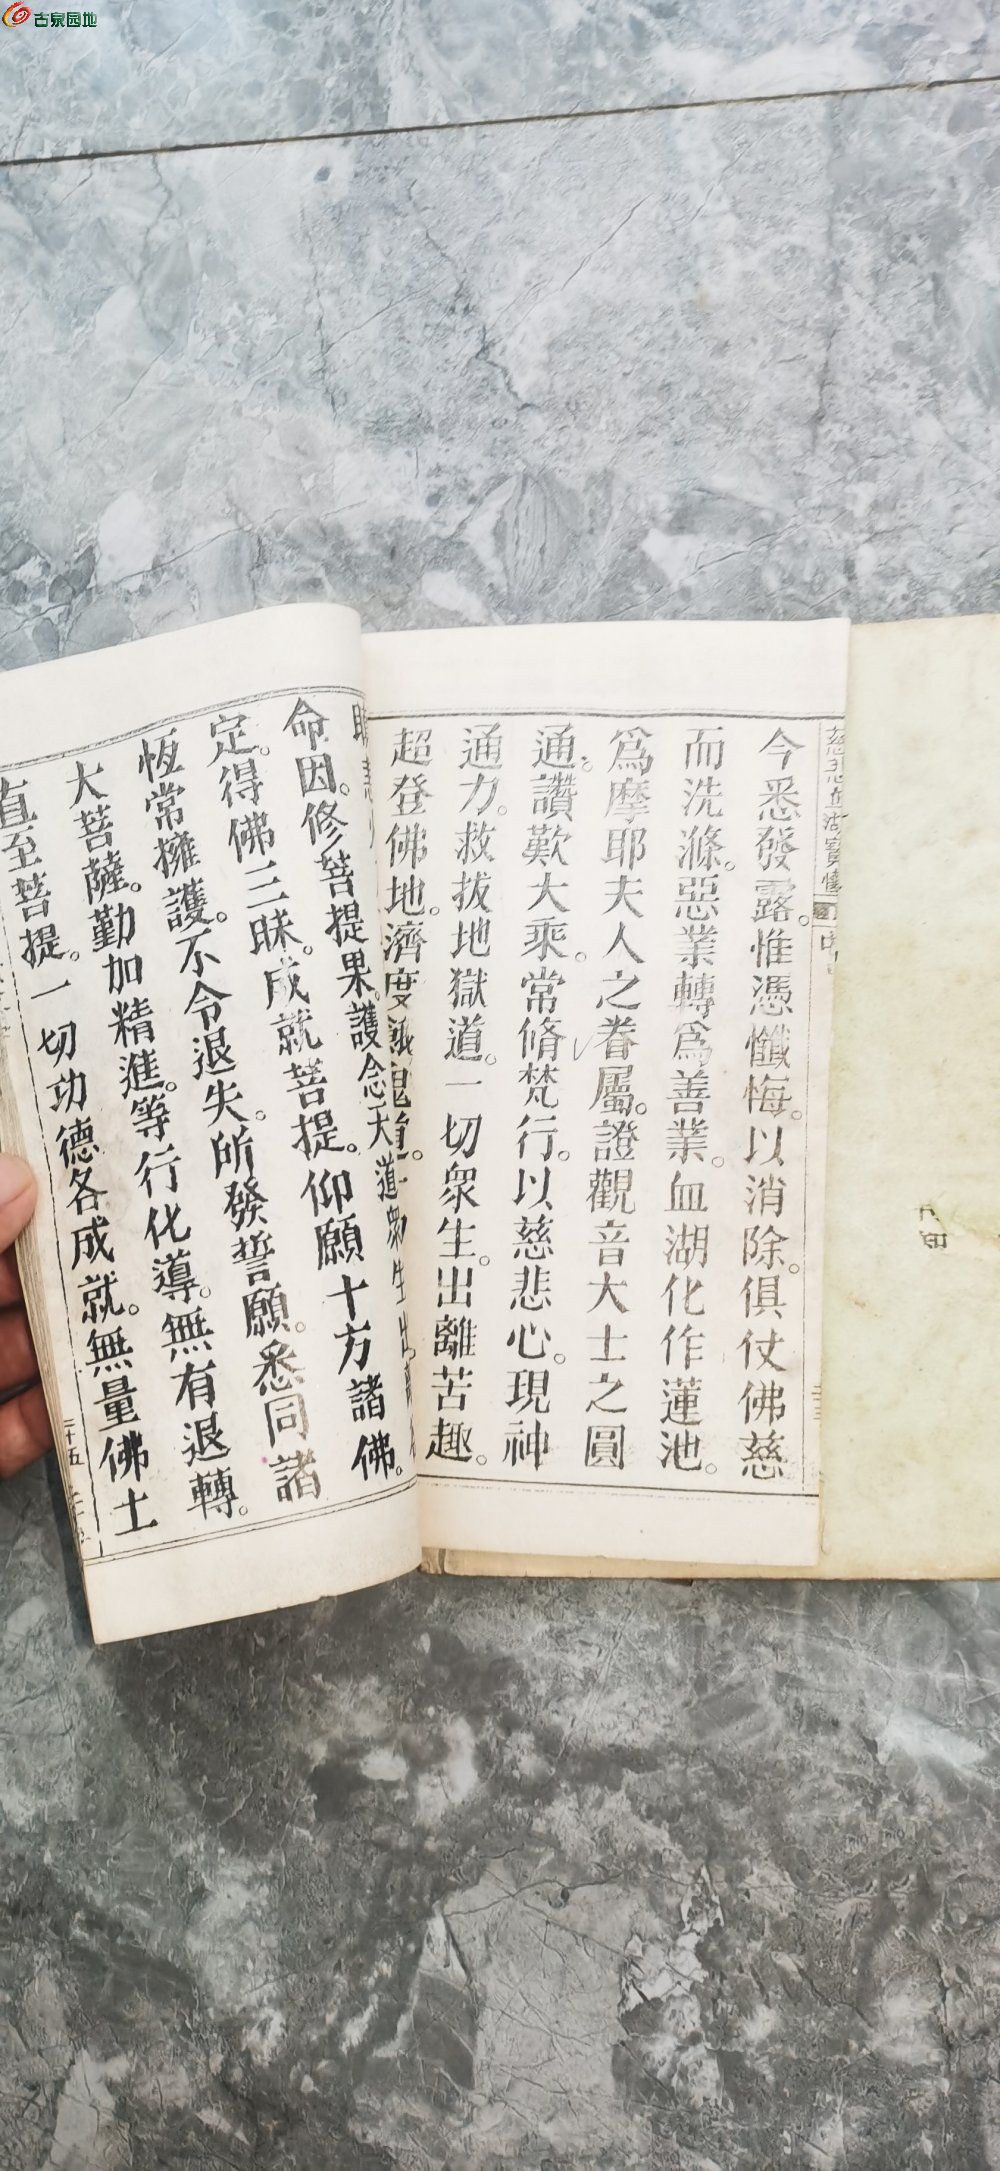 古泉园地
慈悲血湖寶懺
今悉發露。惟憑懺悔。以消除。俱仗佛慈
而洗滌。惡業轉爲善業。血湖化作蓮池。
爲摩耶夫人之眷屬。證觀音大士之圓
通。讚歎大乘。常脩梵行。以慈悲心。現神
通力。救拔地獄道。一切衆生。出離苦趣。
超登佛地。濟度餓鬼道。
護念天道衆生
命因。修菩提果。仰願十方諸佛。
定。得佛三昧。成就菩提。
恆常擁護。不令退失。所發誓願。悉同諸
大菩薩。勤加精進。等行化導。無有退轉。
直至菩提。一切功德各成就。無量佛土
二十五